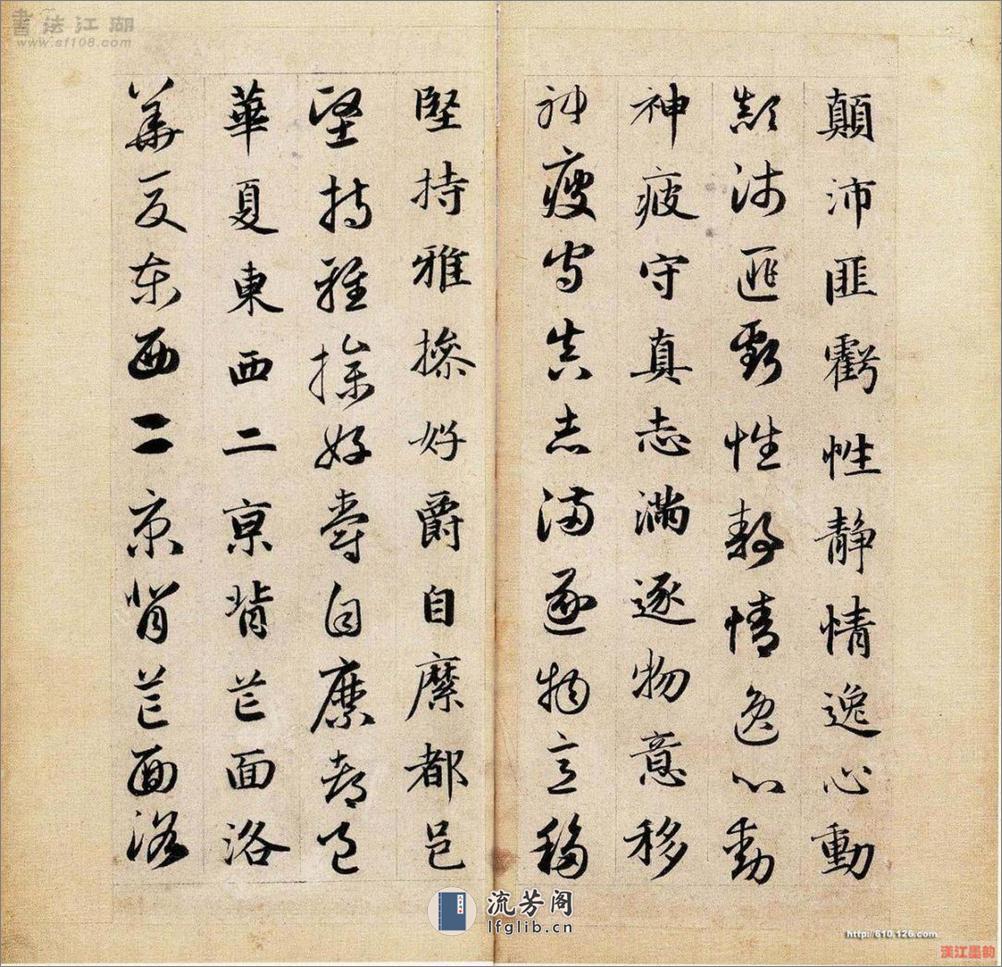 書法江湖
www.sf108.com
顛沛匪虧性静情逸心動
顛沛匪虧性静情逸心動
神疲守真志滿逐物意移
神疲守真志滿逐物意移
堅持雅操好爵自縻都邑
堅持雅操好爵自縻都邑
華夏東西二京背芒面洛
華夏東西二京背芒面洛
流芳阁
lfglib.cn
http://610.126.com
漢江墨韵